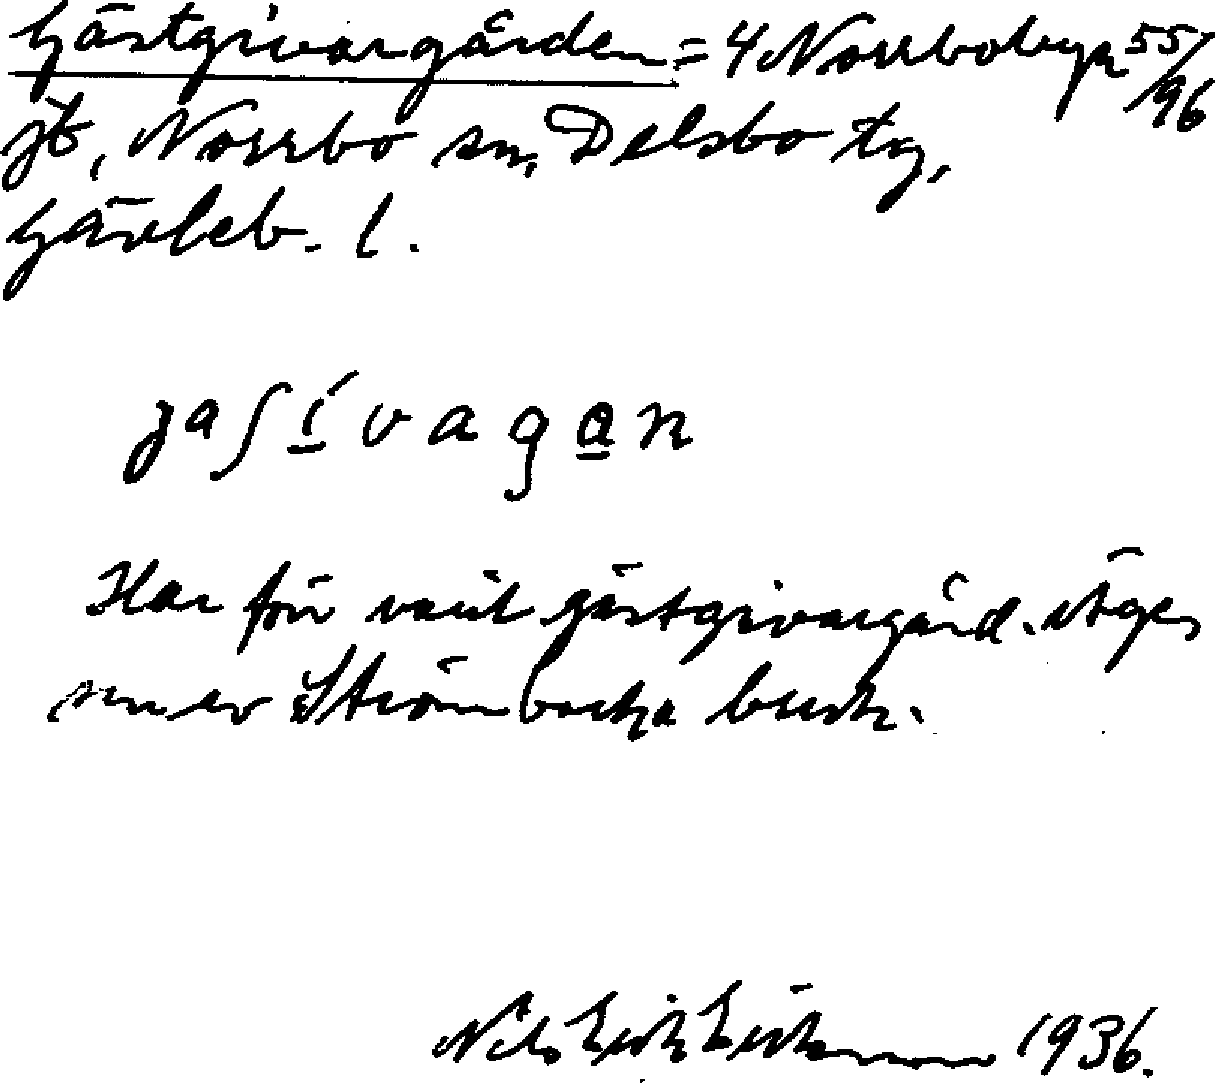 Gästgivargården = 4 Norrbobyn 55/96
jb, Norrbo sn, Delsbo tg,
Gävleb. l.
jaʃívagan
Har förr varit gästgivargård. Äges
numer Strömbacka bruk.
Nils 1936.